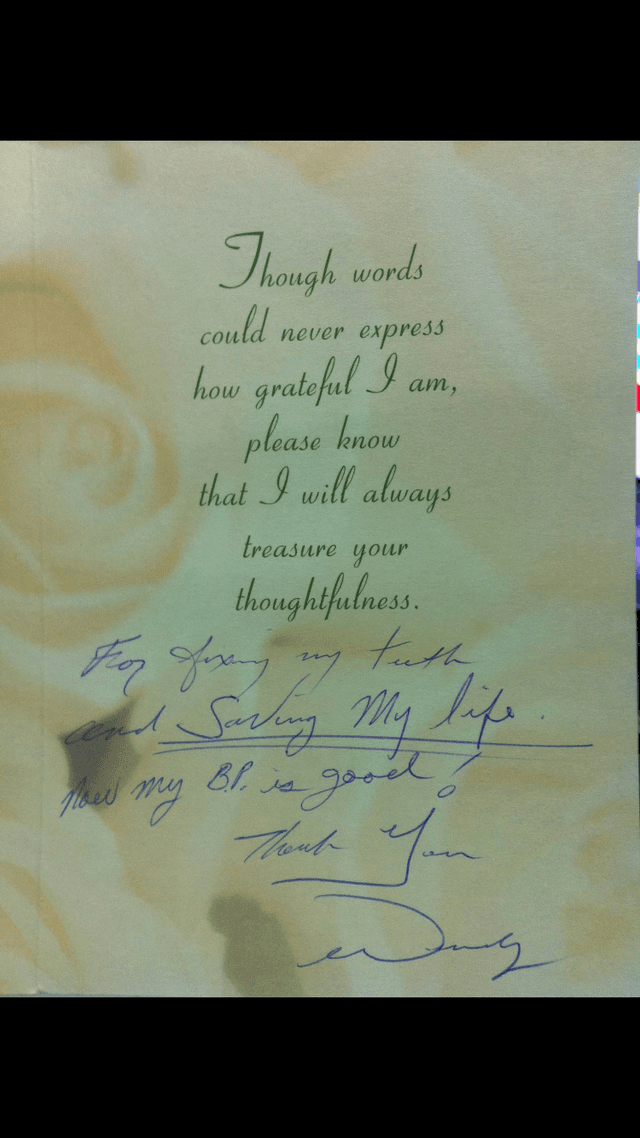 Though words
could never express
how grateful I am,
please know
that I will always
treasure your
thoughtfulness.
For fixing my teeth
and Saving My life.
Now my B.P. is good!
Thank You